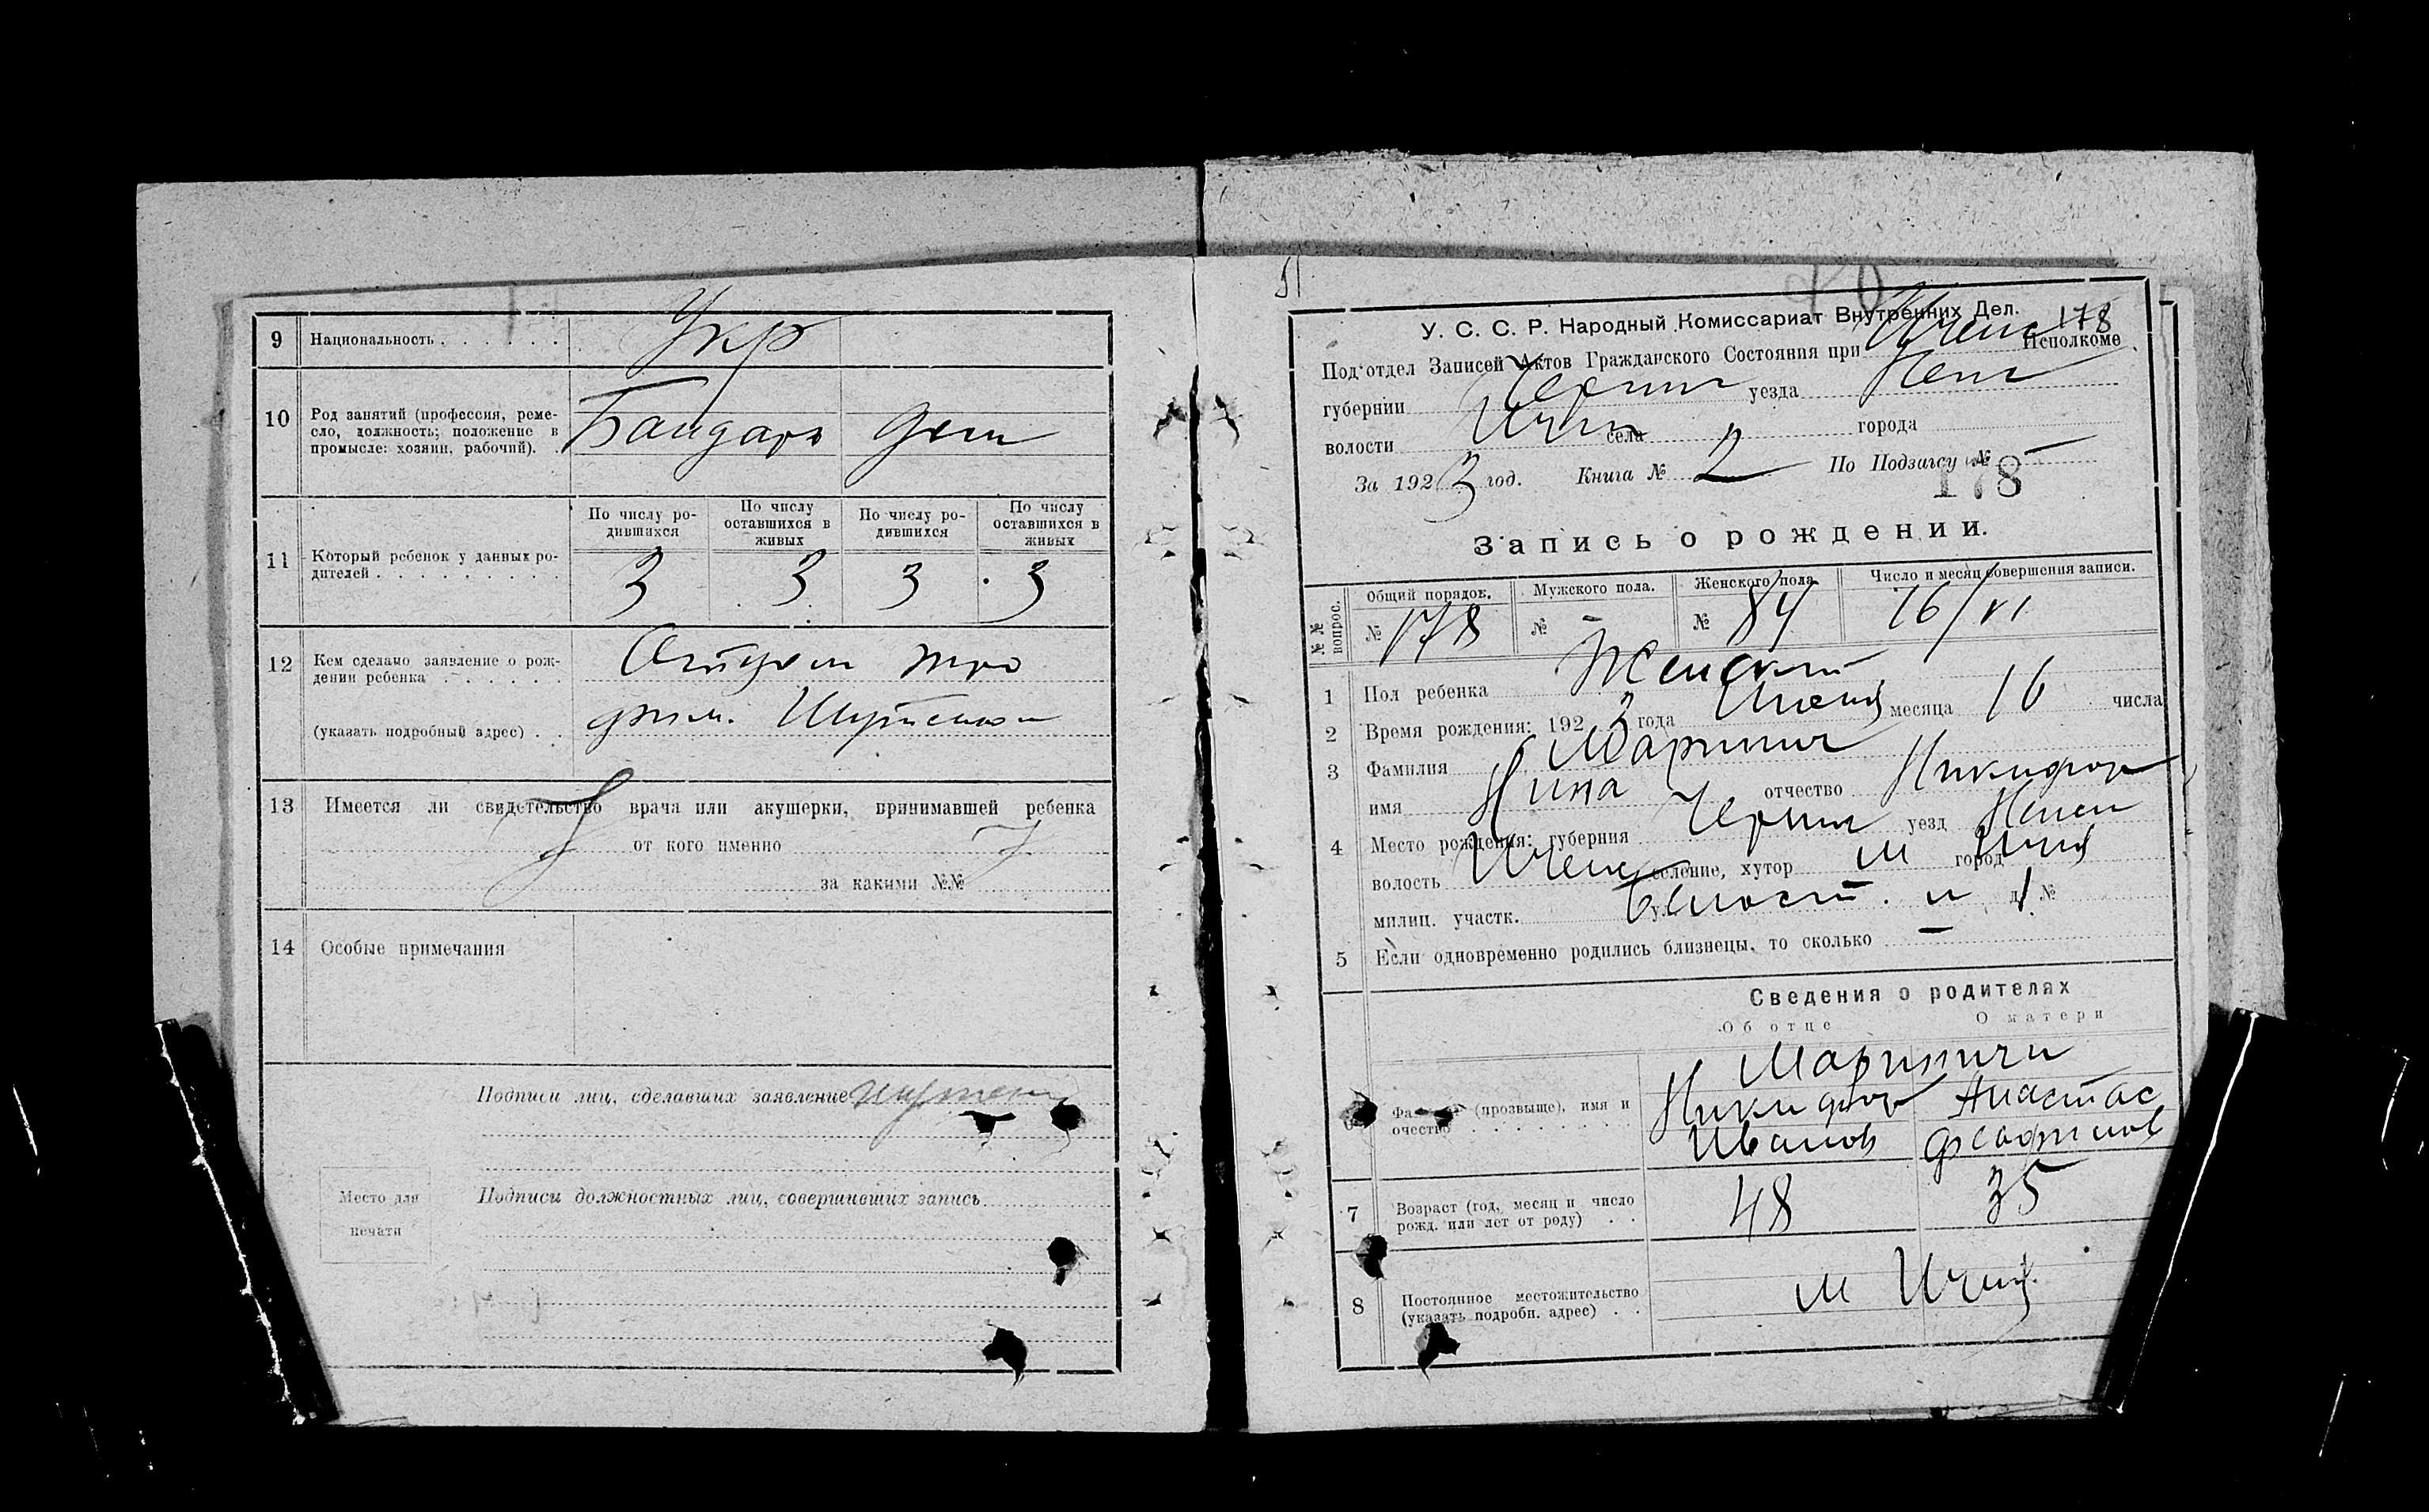 9 Национальность
Укр
10 Род занятий (профессия, реме-
сло, должность; положение в
промысле: хозяин, рабочий).
Бандарь дом
11 Который ребенок у данных ро-
дителей
По числу ро-
дившихся
По числу
оставшихся в
живых
По числу ро-
дившихся
По числу
оставшихся в
живых
3 3 3 3
12 Кем сделано заявление о рож-
дении ребенка
(указать подробный адрес)
Отцем
13 Имеется ли свидетельство врача или акушерки, принимавшей ребенка
от кого именно
за какими №№
14 Особые примечания
Подписи лиц, сделавших заявление
Место для
печати
Подписи должностных лиц, совершивших запись
У. С. С. Р. Народный Комиссариат Внутренних Дел. 178
Под‘отдел Записей Актов Гражданского Состояния при Иченс Исполкоме
губернии Черниг уезда Неж
волости Ичен села города
За 1923 год. Книга № 2 По Подзагсу №
178
Запись о рождении.
№№ вопрос.
Общий порядок. Мужского пола. Женского пола. Число и месяц совершения записи.
№ 178 № – № 84 16/VI
1 Пол ребенка Женский
2 Время рождения: 1923 года Июня месяца 16 числа
3 Фамилия Маринич
имя Нина отчество Никифор
4 Место рождения: губерния Черниг уезд Нежен
волость Иченс селение, хутор м город Ичня
милиц. участк. ул. д. №
5 Если одновременно родились близнецы, то сколько –
Сведения о родителях
Об отце О матери
6 (прозвище), имя и
очество
Мариничи
Никифор Анастас
Иванов Феофилов
7 Возраст (год, месяц и число
рожд. или лет от роду)
48 35
8 Постоянное местожительство
(указать подробн. адрес)
м Ичня